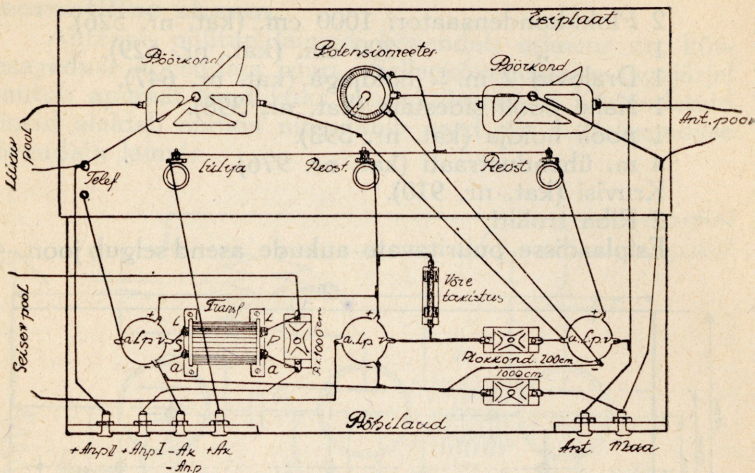 Esiplaat
Pöörkond
Potensiomeeter
Pöörkond
Ant. pool
Liikuv
pool
Telef
Lülija
Reost.
Reost.
Seisev pool
Transf
Võre
takistus
+
+
+
L
L
S
P
a
a
a.l.p.v
a.l.p.v
a.l.p.v
Bl. 1000cm
Plokkond. 200cm
1000cm
-
-
-
Põhilaud
+AnpII
+AnpI
-Ak
+Ak
-Anp
Ant
Maa